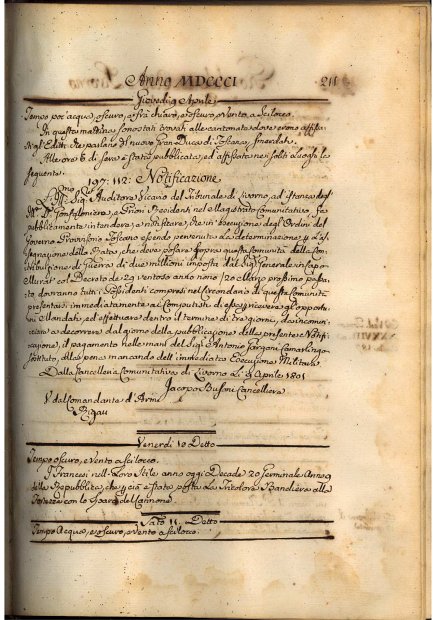 Anno MDCCCI 211
Giovedi 9 Aprile
Tempo poc'acqua, oscuro, e frà chiaro, e oscuro, e Vento, a Scilocco.
In questa mattina sono stati trovati alle cantonate dove erano affissi
Negl'Editti che parlano di nuovo Gran Duca di Toscana, smerdati.
Alle ore 6 di sera è stata pubblicata, ed affissata nei soliti luoghi la
seguente.
197: 112: Notificazione
Sig. Auditore Vicario del Tribunale di Livorno, ad istanza degl'
Gonfaloniere, e Priori Residenti nel Magistrato Comunitativo, fa
pubblicamente intendere, e notificare, che in esecuzione degl'Ordini del
Governo Provvisorio Toscano essendo pervenuta alla determinazione
segnazione della Rata, che deve posare sopra questa Comunità della Con-
tribuzione di Guerra di due milioni imposta dal Sig. Generale in Capo
Murat col Decreto de 29 ventoso anno nono (20 Marzo prossimo passa-
to) dovranno tutti i Possidenti compresi nel Circondario di questa Comunità
presentarsi immediatamente ai Computisti di essa, e ricevere gl'opportu-
ni Mandati, ed effettuare dentro il termine di tre giorni, da incomin-
ciare a decorrere dal giorno della pubblicazione della presente Notifi-
cazione, il pagamento nelle mani del Sig. Antonio Camarlingo
sostituto, alla pena mancando dell'immediata Esecuzione Militare
Dalla Cancelleria Comunitativa di Livorno Li 8 Aprile 1801
Jacopo Cancelliere
V. dal Comandante d'Armi
Rigau
Venerdi 10 Detto
Tempo oscuro, e Vento a scilocco.
I Francesi nell'Loro Stile anno oggi Decade 20 Germinale Anno 9
della Repubblica, che perciò è stato posta La Tricolore Bandiera alla
Fortezza con lo sparo del Cannone.
Sabato 11. Detto
Tempo Acqua, e oscuro, e vento a scilocco.